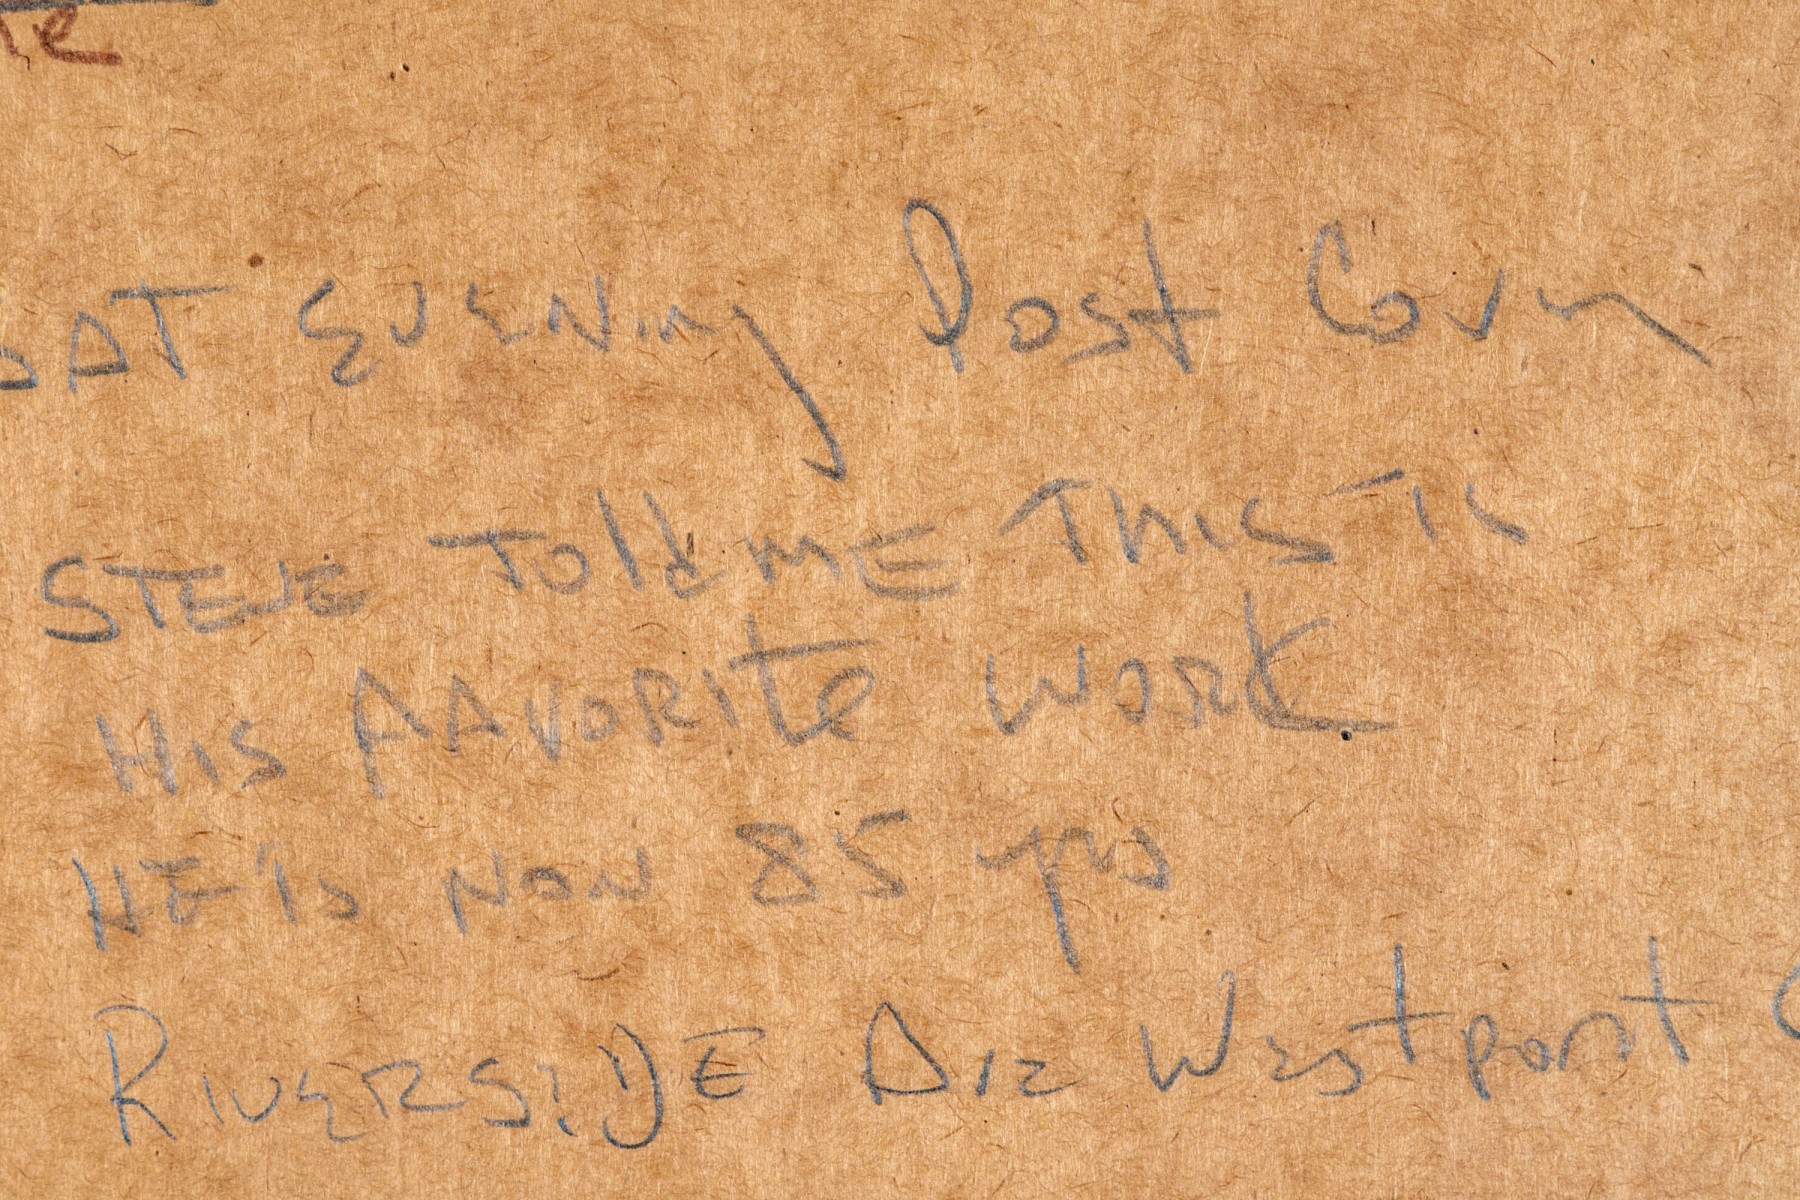 SAT EVENING Post Cover
STEVE Told ME THIS IS
HIS FAVORITE WORK
HE IS NOW 85 yrs
RIVERSIDE Westport